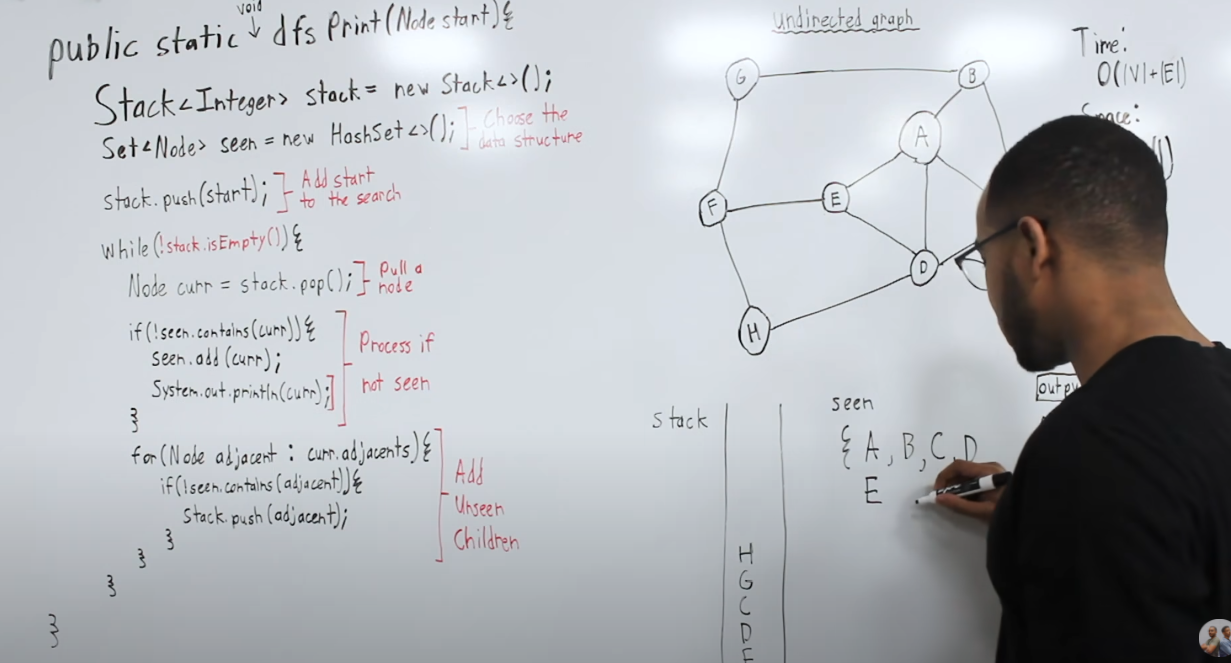 void
public static dfs Print(Node start){
Stack<Integer> stack = new Stack<>();
Set<Node> seen = new HashSet<>();
Choose the
data structure
stack.push(start);
Add start
to the search
while(!stack.isEmpty()){
Node curr = stack.pop();
Pull a
node
if(!seen.contains(curr)){
seen.add(curr);
System.out.println(curr);
}
Process if
not seen
for(Node adjacent : curr.adjacents){
if(!seen.contains(adjacent)){
Stack.push(adjacent);
}
}
}
}
Add
Unseen
Children
undirected graph
G
B
A
E
F
D
H
Time:
O(|V|+|E|)
Space:
stack
H
G
C
D
seen
{A, B, C, D
E